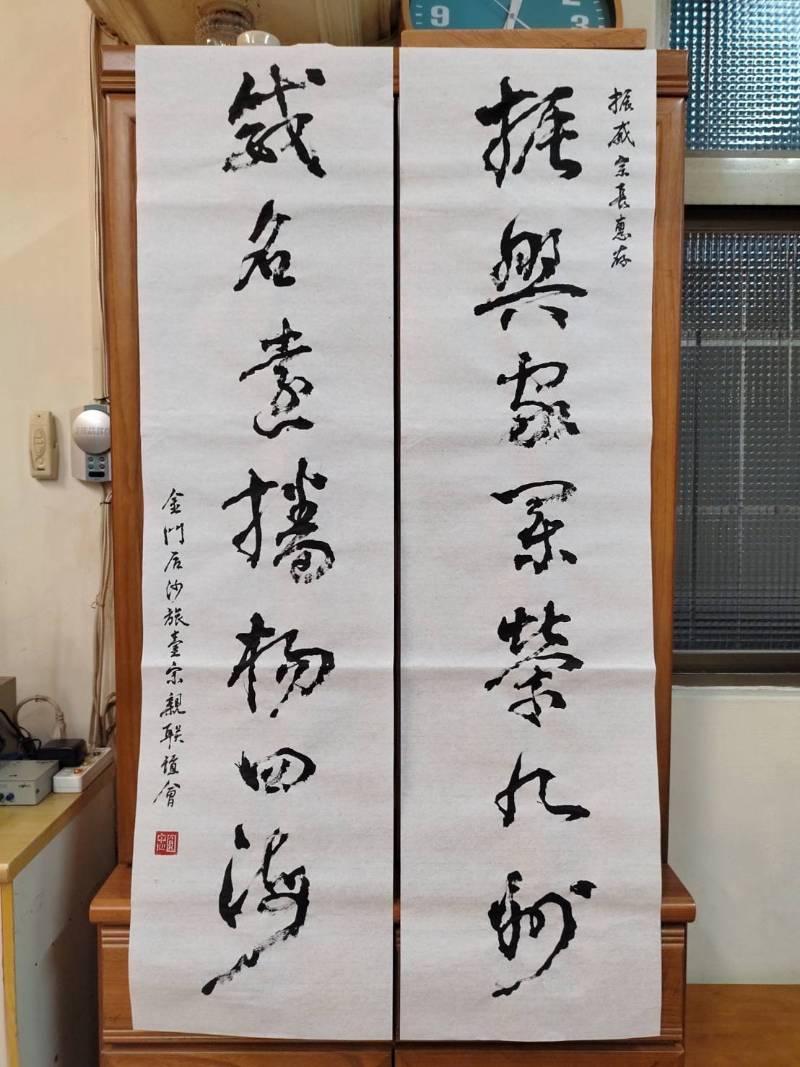 振威宗長惠存
振興家業榮九州
威名遠播揚四海
金門后沙旅臺宗親联誼會
9
2
3